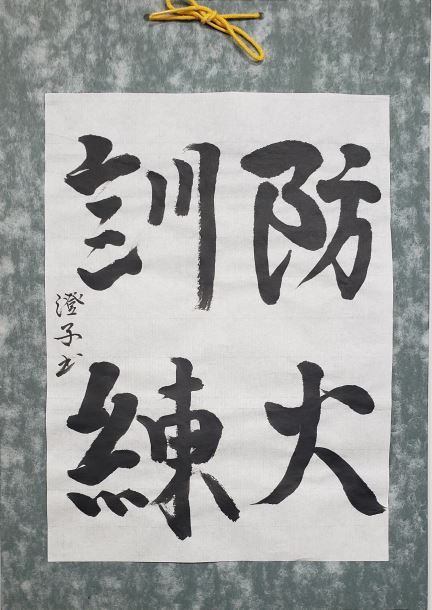 防火
訓練
澄子書